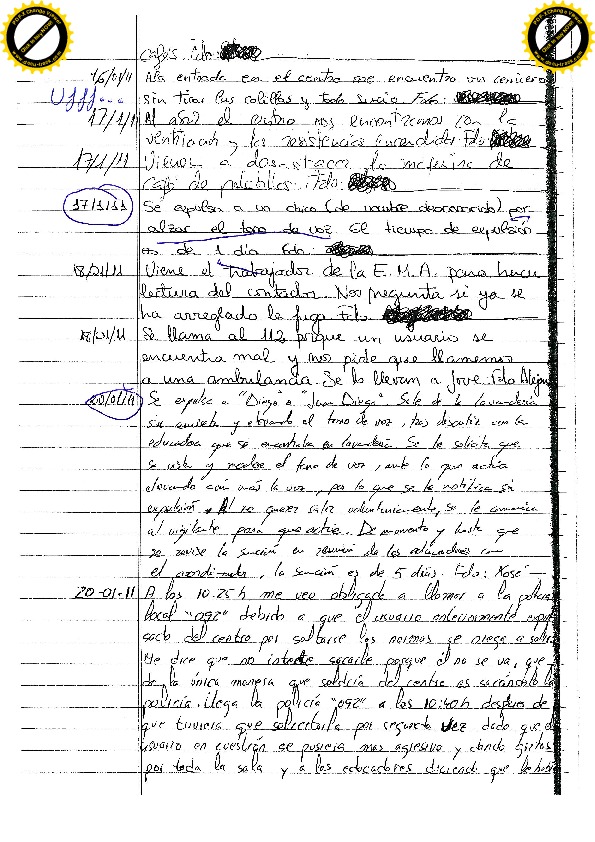 cafés. Fdo:
16/01/11 A la entrada en el centro me encuentro un cenicero
Ufff... sin tirar las colillas y todo sucio Fdo:
17/1/11 Al abrir el centro nos encontramos con la
ventilación y las resistencias encendidas. Fdo:
17/1/11 Vienen a desatascar la máquina de
café de palabras. Fdo:
17/1/11 Se expulsa a un chico (de nombre desconocido) por
alzar el tono de voz. El tiempo de expulsión
es de 1 día Fdo:
18/01/11 Viene el trabajador de la E.M.A. para hacer
lectura del contador. Nos pregunta si ya se
ha arreglado la fuga Fdo.
18/01/11 Se llama al 112 porque un usuario se
encuentra mal y nos pide que llamemos
a una ambulancia. Se lo llevan a Jove. Fdo
20/01/11 Se expulsa a "Diego" o "Juan Diego". Sale de la lavandería
sin camiseta y elevando el tono de voz, tras discutir con la
educadora que se encontraba en lavandería. Se le solicita que
se vista y modere el tono de voz, ante lo que actúa
elevando aún más la voz, por lo que se le notifica su
expulsión. Al no querer salir voluntariamente, se le comunica
al vigilante, para que actúe. De momento y hasta que
se revise la sanción en reunión de los educadores con
el coordinador, la sanción es de 5 días. Fdo: Xosé
20-01-11 A las 10.25h me veo obligado a llamar a la policía
local "092" debido a que el usuario anteriormente expul
sado del centro por saltarse las normas se niega a salir.
Me dice que no intente sacarle porque él no se va, que
de la única manera que saldría del centro es sacándolo la
policía. Llega la policía "092" a las 10:40h después de
que tuviera que solicitarla por segunda vez dado que el
usuario en cuestión se pusiera más agresivo y dando gritos
por toda la sala y a los educadores diciendo que